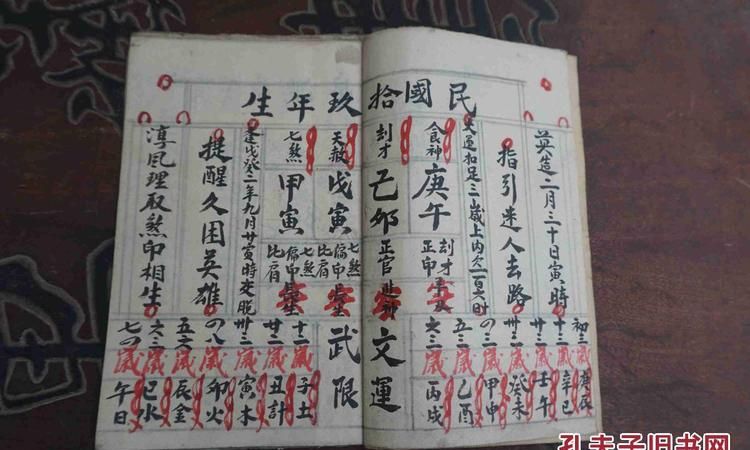 民國拾玖年生
英造二月三十日寅時
指引迷人去路
大運扣足三歲上内欠一百六時
食神
庚午
刦才
正印
刦才
己卯
正官
文運
天赦
戊寅
七煞
偏印
比肩
武限
七煞
甲寅
七煞
偏印
比肩
逢戊癸二年九月廿寅時交脫
提醒久困英雄
淳風理取煞印相生
初三歲庚辰
十三歲辛巳
廿三歲壬午
卅三歲癸未
四三歲甲申
五三歲乙酉
六三歲丙戌
十二歲子土
廿二歲丑計
卅三歲寅木
四八歲卯火
五六歲辰金
六三歲巳水
七四歲午日
孔夫子旧书网